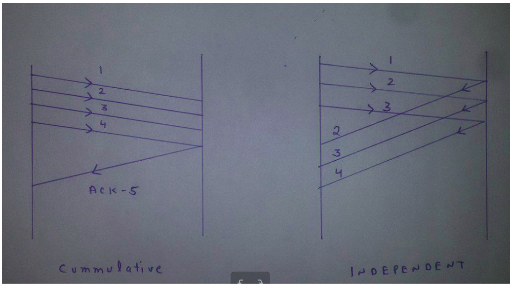 1
2
3
4
ACK-5
Cummulative
1
2
3
2
3
4
INDEPENDENT